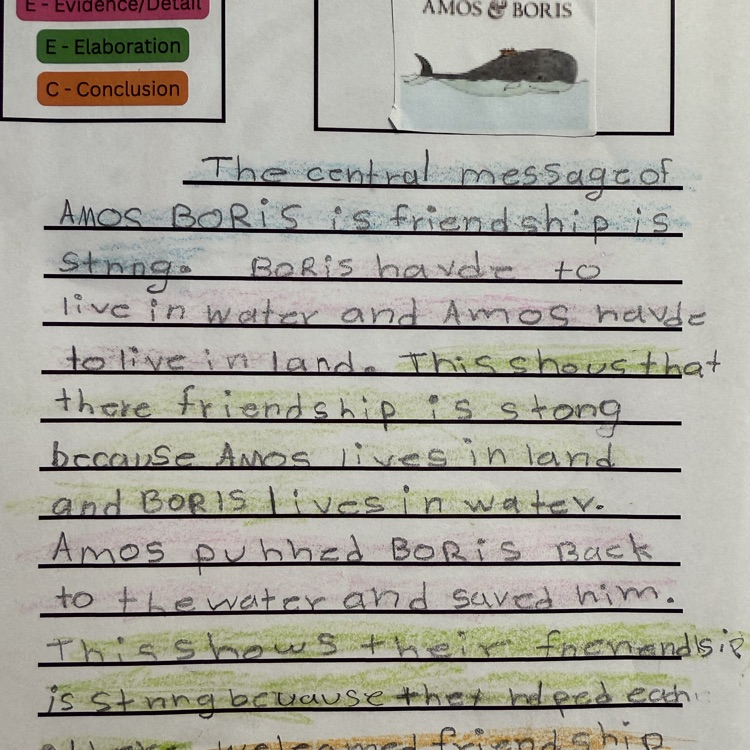 E - Evidence/Detail
E - Elaboration
C - Conclusion
AMOS & BORIS
The central message of
AMOS BORiS is friendship is
strnng. BORiS havde to
live in water and Amos havde
to live in land. This shows that
there friendship is stong
because AMOS lives in land
and BORIS lives in water.
Amos puhhed BORiS Back
to the water and saved him.
This shows their frienendsip
is strnng beuause they helped each
friendship